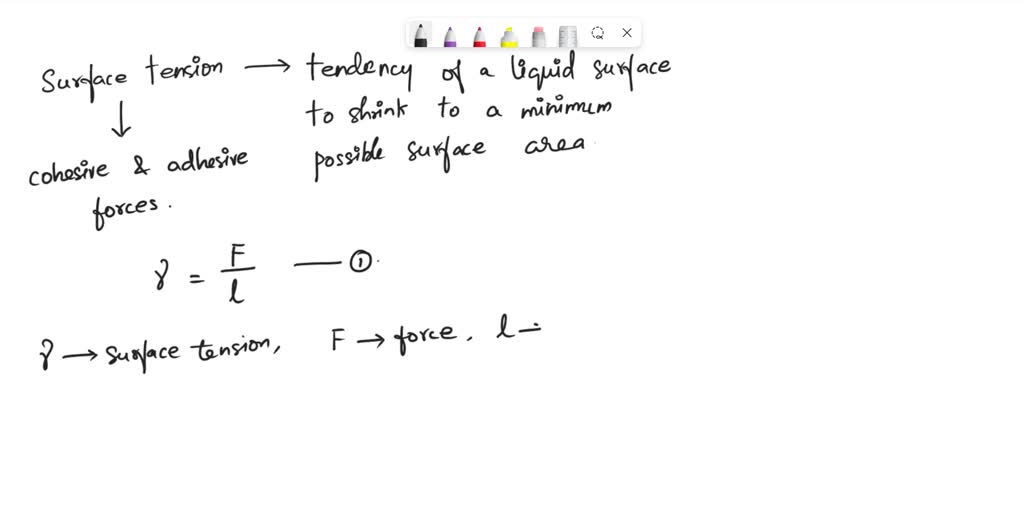 Surface tension → tendency of a liquid surface
to shrink to a minimum
possible surface area
↓
cohesive & adhesive
forces.
γ = F/l —— ①.
γ → surface tension, F → force, l –